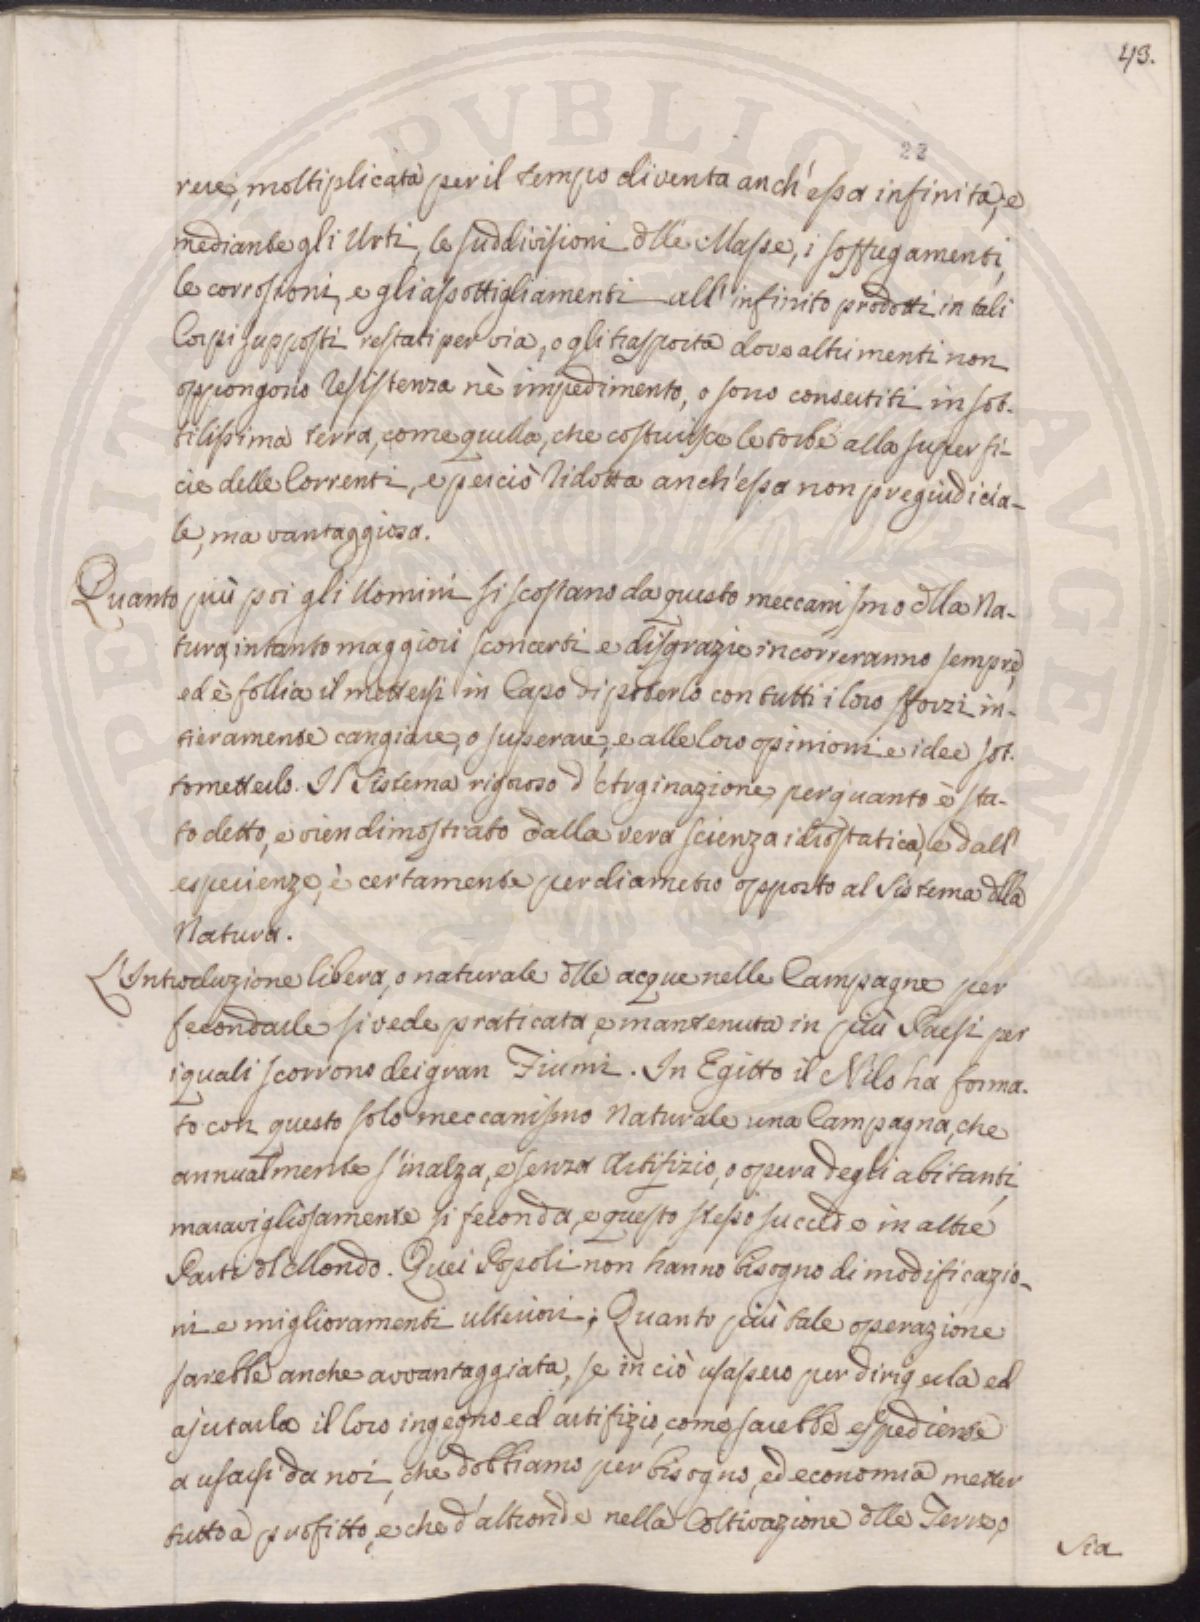 43.
22
rere, moltiplicata per il tempo diventa anch'essa infinita, e
mediante gli Urti, le suddivisioni dlle Masse, i soffregamenti,
le corrosioni, e gli assottigliamenti all'infinito prodotti in tali
Corpi supposti restati per via, o gli trasporta dove altrimenti non
oppongono resistenza nè impedimento, o sono convertiti in sot-
tilissima terra, come quella, che costruisce le torbe alla superfi-
cie delle Correnti, e perciò ridotta anch'essa non pregiudicia-
le, ma vantaggiosa.
Quanto più poi gli Uomini si scostano da questo meccanismo dlla Na-
tura, in tanto maggiori sconcerti e disgrazie incorreranno sempre,
ed è follia il mettersi in Capo di poterlo con tutti i loro sforzi in-
tieramente cangiare, o superare, e alle loro opinioni e idee sot-
tometterlo. Il Sistema rigoroso d'Arginazione, per quanto è sta-
to detto, e vien dimostrato dalla vera scienza idrostatica, e dall'
esperienze, è certamente per diametro opposto al Sistema dlla
Natura.
L'Introduzione libera, o naturale dlle acque nelle Campagne per
fecondarle si vede praticata, e mantenuta in più Paesi per
i quali scorrono dei gran Fiumi. In Egitto il Nilo ha forma-
to con questo solo meccanismo Naturale una Campagna, che
annualmente s'inalza, e senza Artifizio, o opera degli abitanti,
maravigliosamente si feconda, e questo stesso succede in altre
Parti dl Mondo. Quei Popoli non hanno bisogno di modificazio-
ni e miglioramenti ulteriori; Quanto più tale operazione
sarebbe anche avvantaggiata, se in ciò usassero per dirigerla ed
ajutarla il loro ingegno ed artifizio, come sarebbe espediente
a usarsi da noi, che dobbiamo per bisogno, ed economia metter
tutto a profitto, e che d'altronde nella Coltivazione dlle Terre,
Sia
SPERITAS PVBLICA AVGENDA